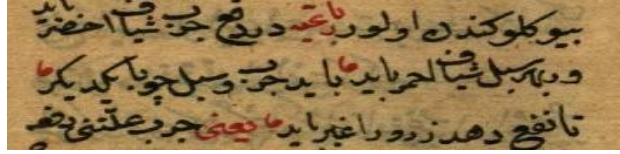 بیوکلوکندن اولور باعیه در دفع جرب شیاف اخضر باید
و برای سبل شیاف احمر باید ما باید جرب و سبل چو با یکدیگر ما
تا نفع دهد زرورا غبر باید ما یعنی جرب علتنی دفعه